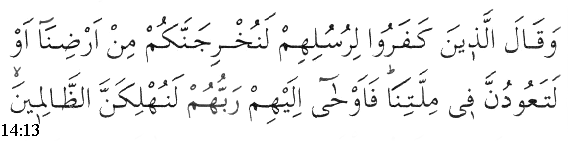 وَقَالَ الَّذ۪ينَ كَفَرُوا لِرُسُلِهِمْ لَنُخْرِجَنَّكُمْ مِنْ اَرْضِنَٓا اَوْ
لَتَعُودُنَّ ف۪ي مِلَّتِنَاۜ فَاَوْحٰٓى اِلَيْهِمْ رَبُّهُمْ لَنُهْلِكَنَّ الظَّالِم۪ينَۙ
14:13